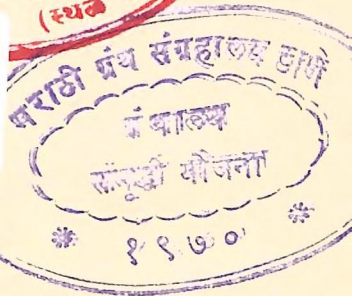 (स्थळ
मराठी ग्रंथ संग्रहालय ठाणे
ग्रंथालय
समृद्धी योजना
* १९७० *